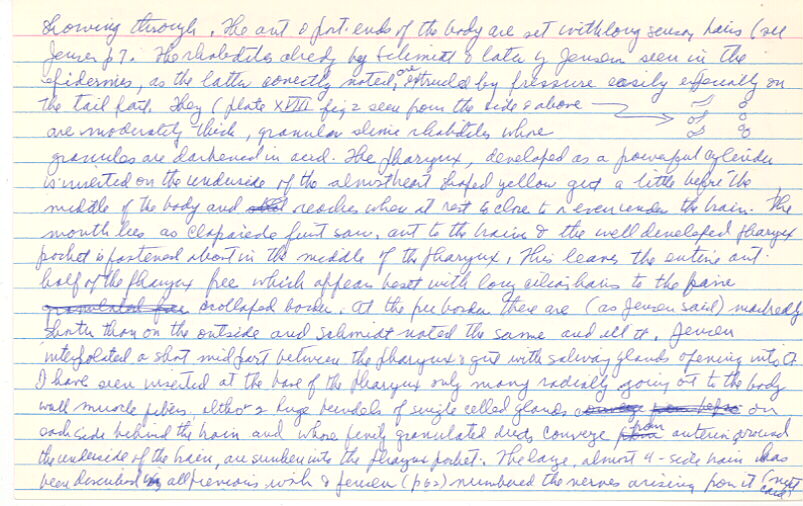 showing through. The ant & post. ends of the body are set with long sensory hairs (see
Jensen p 7. The rhabdites already by Schmidt & later by Jensen seen in the
epidermis, as the latter correctly noted, are extruded by pressure easily especially on
the tail part. They (plate XVIII fig 2 seen from the side & above
are moderately thick, granular slimic rhabdites whose
granules are darkened in acid. The pharynx, developed as a powerful cylinder
is inserted on the underside of the almost heart shaped yellow gut a little before the
middle of the body and reaches when at rest to close to or even under the brain. The
mouth lies as Claparede first saw, ant to the brain & the well developed pharynx
pocket is fastened about in the middle of the pharynx. This leaves the entire ant.
half of the pharynx free which appears beset with long cilia hairs to the
scolloped border. At the free border there are (as Jensen said) markedly
shorter than on the outside and Schmidt noted the same and all it. Jensen
interpolated a short mid part between the pharynx & gut with salivary glands opening into it
I have seen inserted at the base of the pharynx only many radially going out to the body
wall muscle fibers, altho 2 huge bundels of single celled glands on
each side behind the brain and whose finely granulated ducts converge from anterior around
the underside of the brain, are sunken into the pharynx pocket. The large, almost 4-side brain has
been described by all previous wish & Jensen (p 62) numbered the nerves arising from it (next
card)